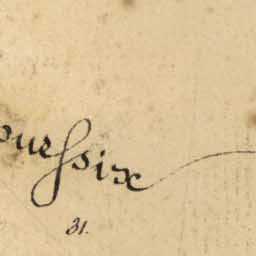 ouessix
31.